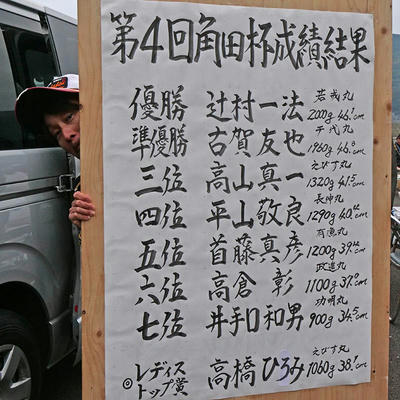 第4回角田杯成績結果
優勝 辻村一法 若戎丸 2000g 46.7cm
準優勝 古賀友也 千代丸 1960g 46.8cm
三位 高山真一 えびす丸 1320g 41.5cm
四位 平山敬良 長伸丸 1290g 40.4cm
五位 首藤真彦 1200g 39.4cm
六位 高倉彰 政進丸 1100g 37.9cm
七位 井手口和男 功明丸 900g 34.5cm
◎レディストップ賞 高橋ひろみ えびす丸 1060g 38.1cm